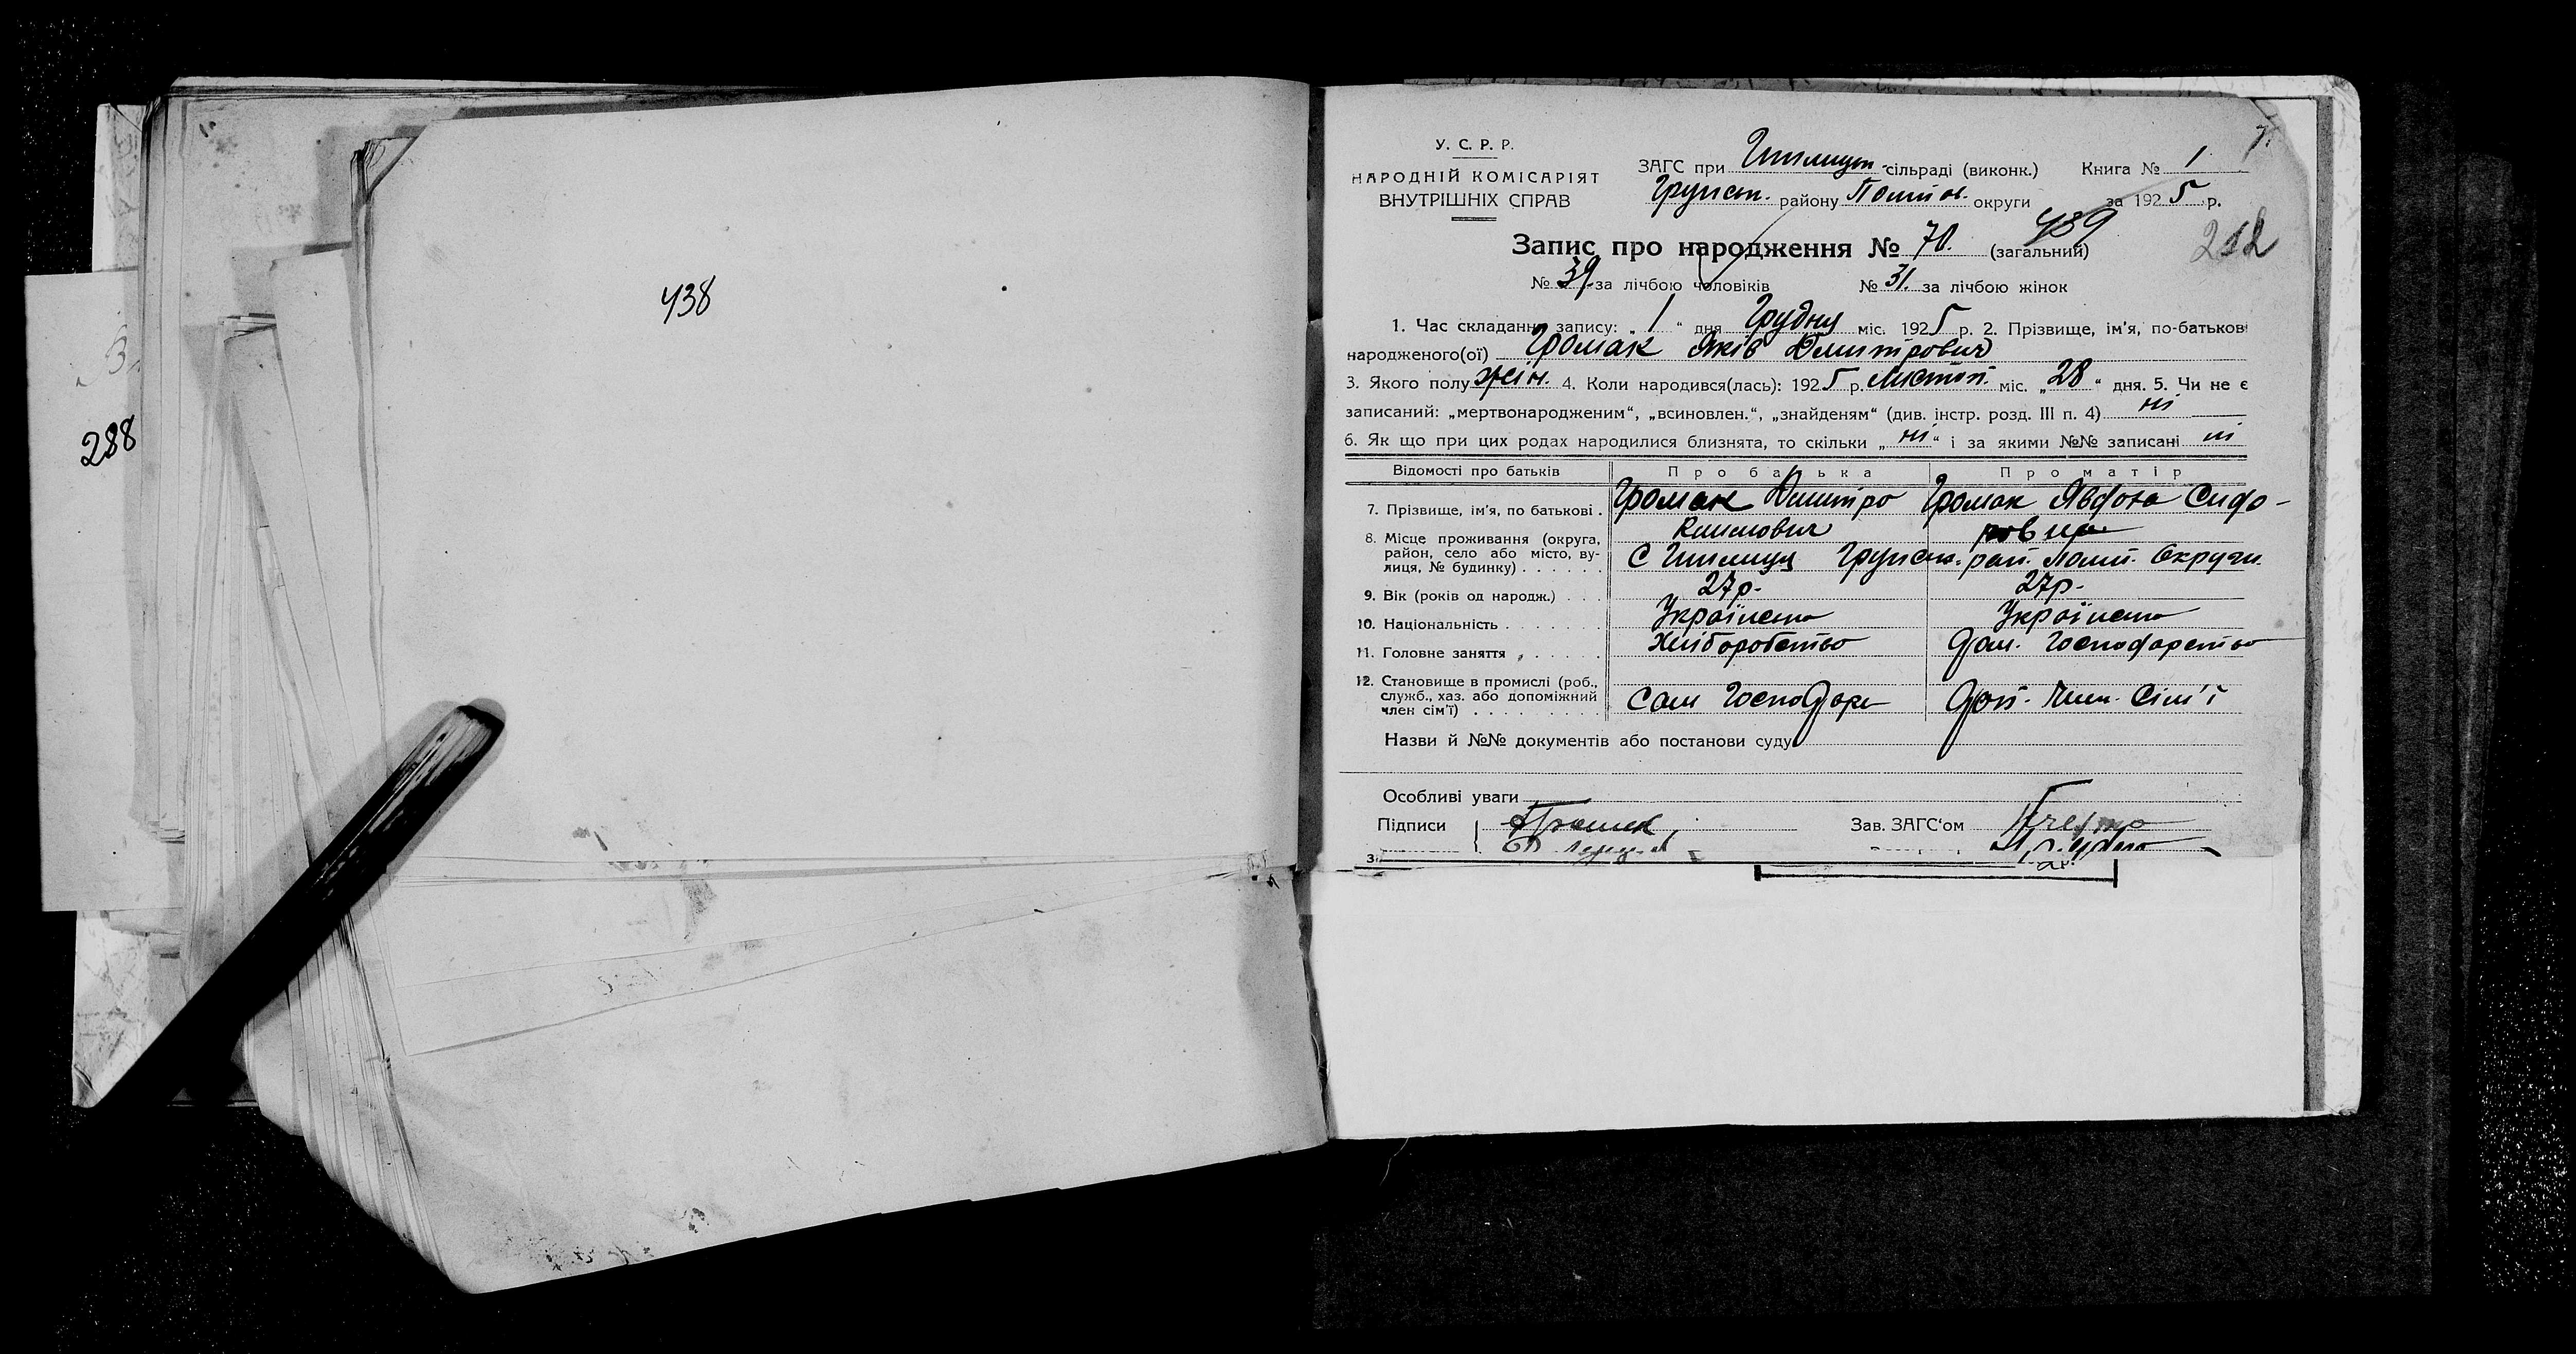 438
288
У. С. Р. Р.
НАРОДНІЙ КОМІСАРІЯТ
ВНУТРІШНІХ СПРАВ
ЗАГС при сільраді (виконк.) Книга № 1
Грунськ. району Полтов. округи за 1925 р.
489
212
Запис про народження № 70. (загальний)
№ 39 за лічбою чоловіків № 31. за лічбою жінок
1. Час складання запису: „ 1 “ дня Грудня міс. 1925 р. 2. Прізвище, ім'я, по-батькові
народженого(ої) Громак Яків Дмитрович
3. Якого полу жін. 4. Коли народився(лась): 1925 р. Листоп. міс. „28“ дня. 5. Чи не є
записаний: „мертвонародженим“, „всиновлен.“, „знайденям“ (див. інстр. розд. III п. 4) ні
6. Як що при цих родах народилися близнята, то скільки „ ні “ і за якими №№ записані ні
Відомості про батьків Про батька Про матір
7. Прізвище, ім'я, по батькові . Громак Дмитро Климович Громак Явдоха Сидоровна
8. Місце проживання (округа,
район, село або місто, ву-
лиця, № будинку) . . . . . . С рай. Округи.
9. Вік (років од народж.) . . . 27р. 27р.
10. Національність . . . . . . . Українець Українець
11. Головне заняття . . . . . . Хліборобство Дом. Господарство
12. Становище в промислі (роб.,
служб., хаз. або допоміжний
член сім'ї) . . . . . . . . Сам Господарь Доп. Член. Сім'ї
Назви й №№ документів або постанови суду
Особливі уваги
Підписи Громак Зав. ЗАГС'ом